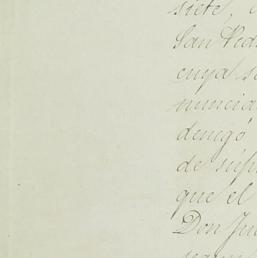 siete,
San Ped
cuya s
nuncia
denegó
de súpl
que el
Don Ju